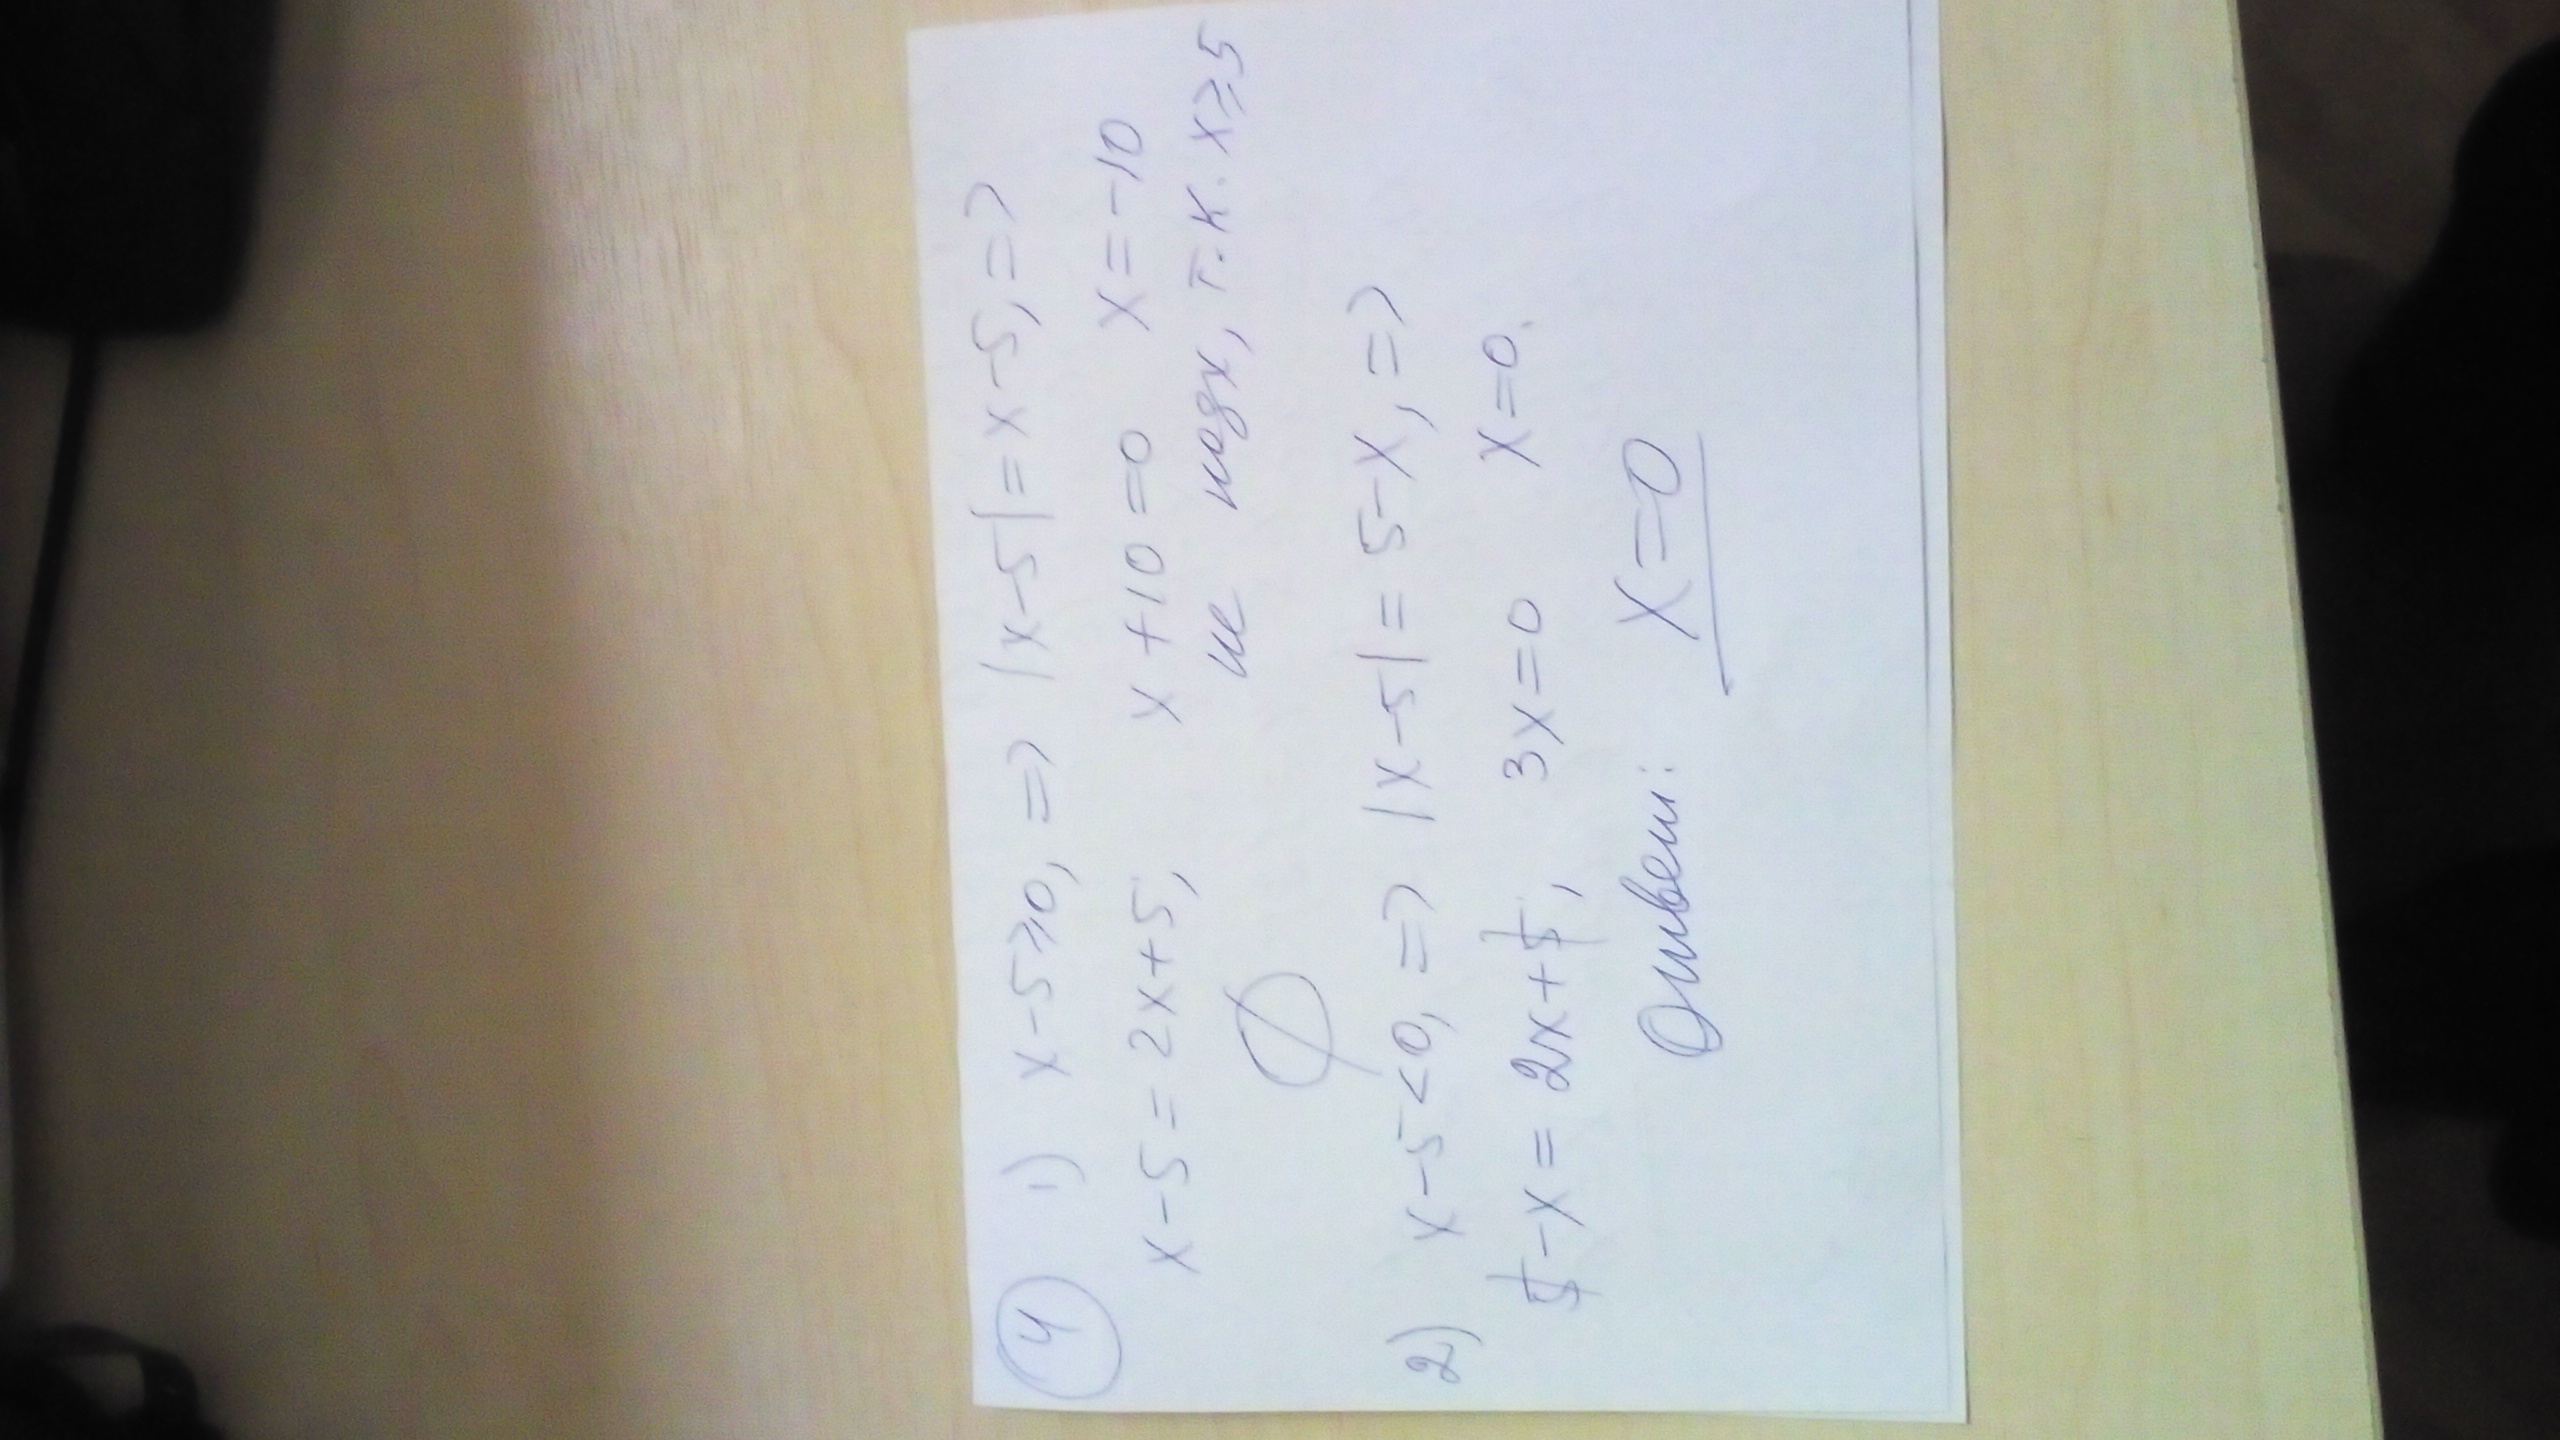 4 1) x-5≥0, => |x-5| = x-5, =>
x-5 = 2x+5, x+10=0 x=-10
∅ не подх, т.к. x≥5
2) x-5<0, => |x-5| = 5-x, =>
5-x = 2x+5, 3x=0 x=0.
Ответ: x=0